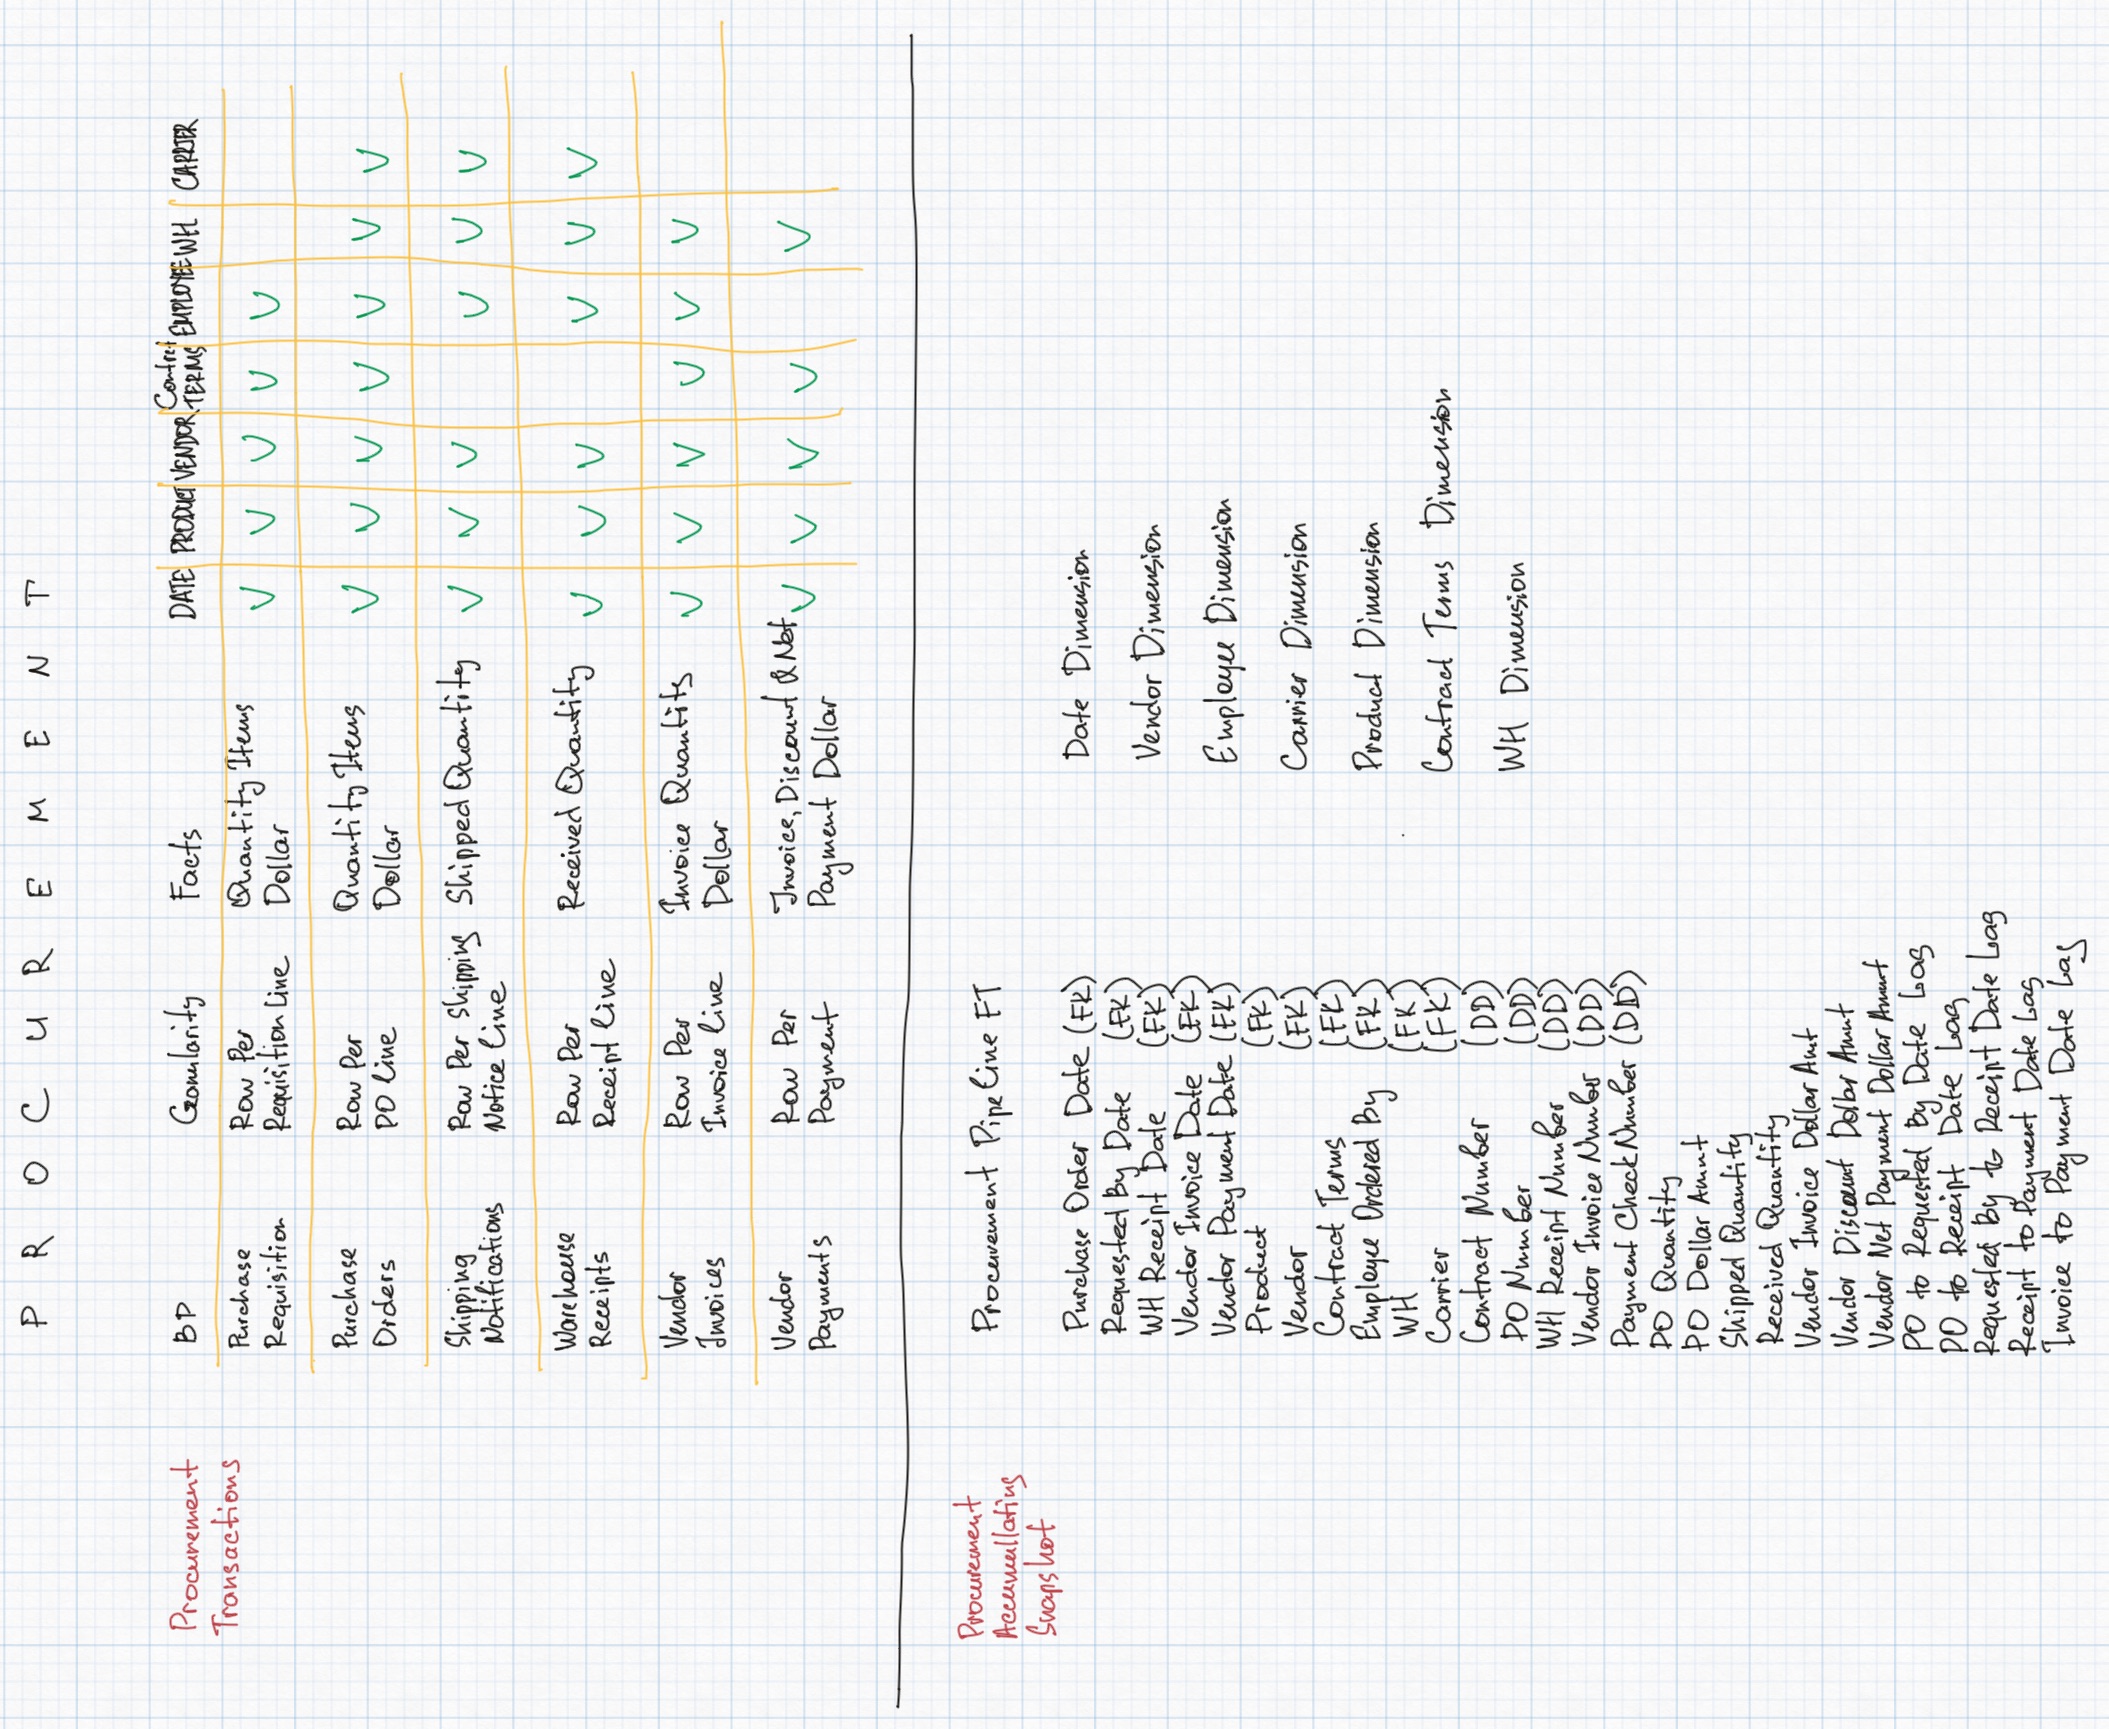 PROCUREMENT
Procurement
Transactions
BP Granularity Facts DATE PRODUCT VENDOR Contract TERMS EMPLOYEE WH CARRIER
Purchase Row Per Quantity Items V V V V V
Requisition Requisition Line Dollar
Purchase Row Per Quantity Items V V V V V V V
Orders PO line Dollar
Shipping Row Per Shipping Shipped Quantity V V V V V V
Notifications Notice line
Warehouse Row Per Received Quantity V V V V V V
Receipts Receipt line
Vendor Row Per Invoice Quantity V V V V V V
Invoices Invoice line Dollar
Vendor Row Per Invoice, Discount & Net V V V V V
Payments Payment Payment Dollar
Procurement
Accumullating
Snapshot
Procurement Pipeline FT
Purchase Order Date (FK)
Requested By Date (FK)
WH Receipt Date (FK)
Vendor Invoice Date (FK)
Vendor Payment Date (FK)
Product (FK)
Vendor (FK)
Contract Terms (FK)
Employee Ordered By (FK)
WH (FK)
Carrier (FK)
Contract Number (DD)
PO Number (DD)
WH Receipt Number (DD)
Vendor Invoice Number (DD)
Payment Check Number (DD)
PO Quantity
PO Dollar Amnt
Shipped Quantity
Received Quantity
Vendor Invoice Dollar Amt
Vendor Discount Dollar Amnt
Vendor Net Payment Dollar Amnt
PO to Requested By Date Lag
PO to Receipt Date Lag
Requested By to Receipt Date Lag
Receipt to Payment Date Lag
Invoice to Payment Date Lag
Date Dimension
Vendor Dimension
Employee Dimension
Carrier Dimension
Product Dimension
Contract Terms Dimension
WH Dimension